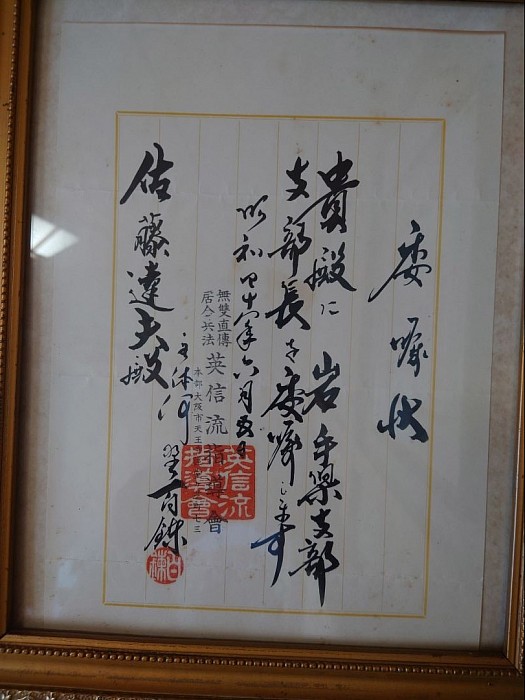 委嘱状
貴殿に岩手県支部
支部長を委嘱します
昭和四十年六月
無雙直傳
居合兵法
英信流指導會
本部 大阪市天王
主 河野百錬
佐藤達夫殿
英信流
指導會
百錬